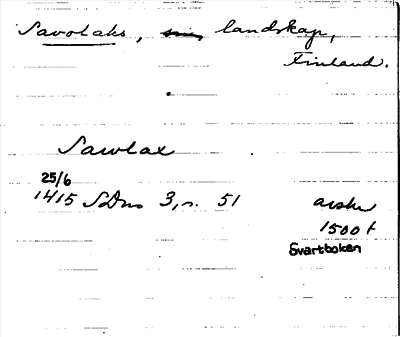 Savolaks, landskap,
Finland.
Sawlax
25/6
1415 SDns 3, s. 51 avskr
1500 t
Svartboken